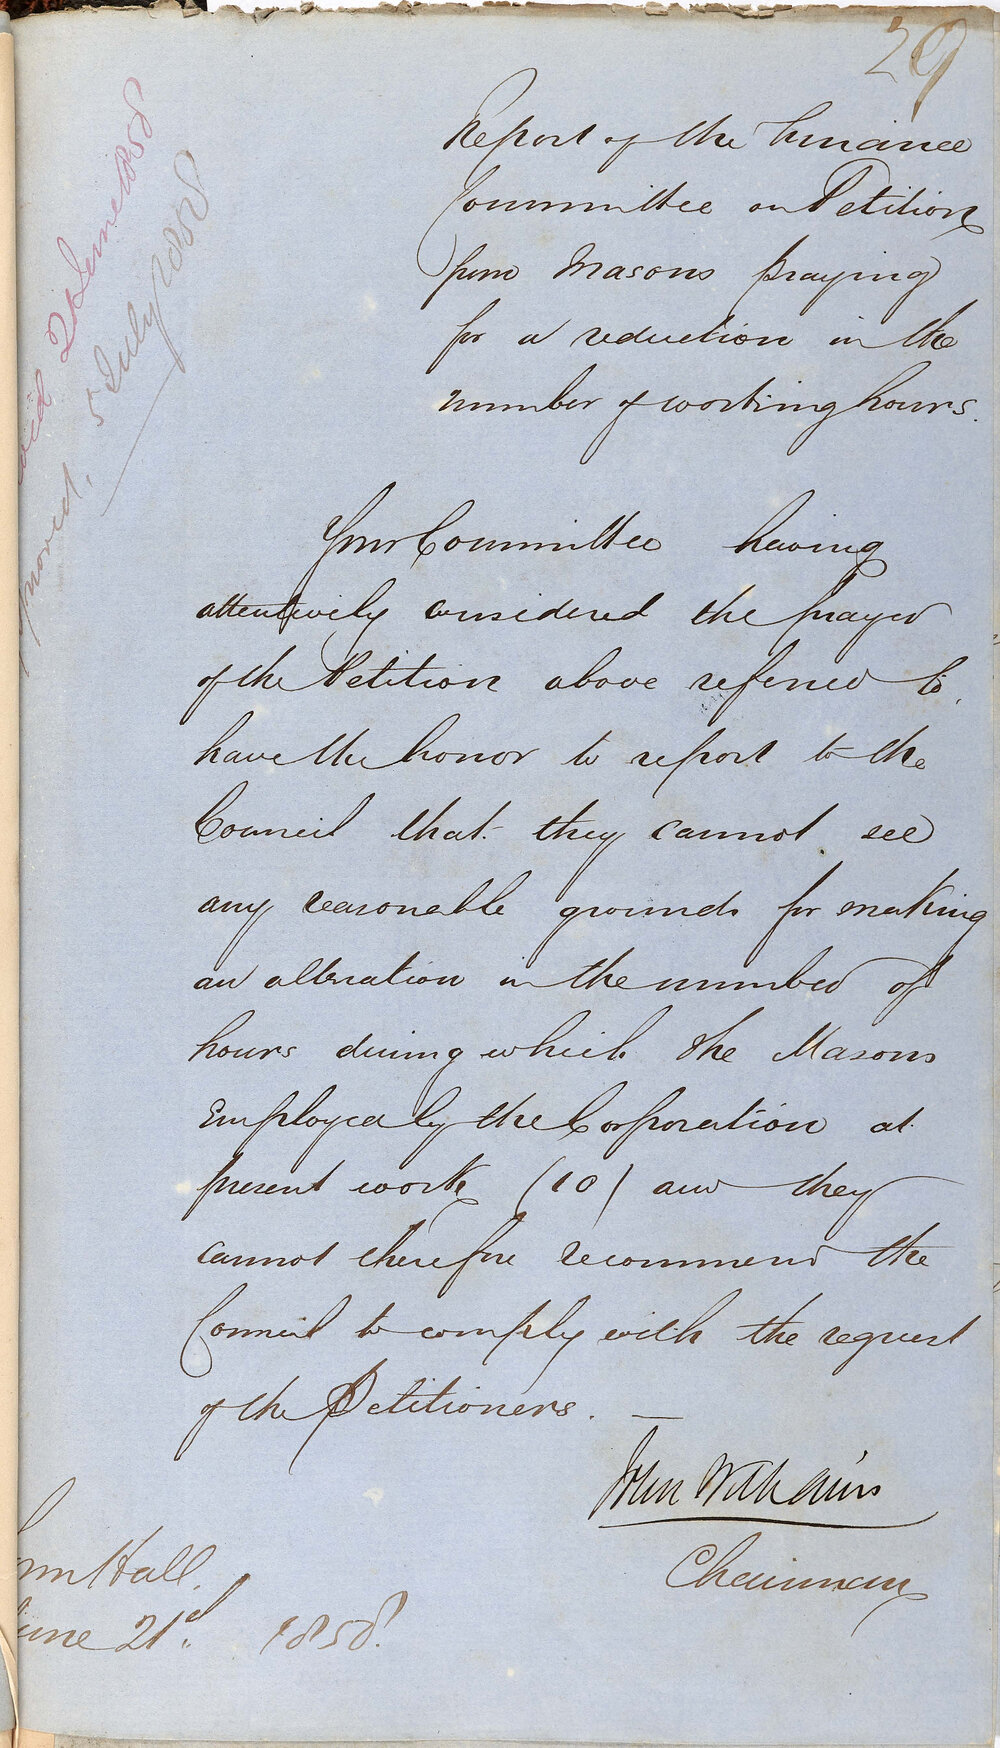 29
Report of the Finance
Committee on Petition
from Masons praying
for a reduction in the
number of working hours.
21 June 1858
5 July 1858
Your Committee having
attentively considered the prayer
of the Petition above referred to
have the honor to report to the
Council that they cannot see
any reasonable grounds for making
an alteration in the number of
hours during which the Masons
Employed by the Corporation at
present work (10) and they
cannot therefore recommend the
Council to comply with the request
of the Petitioners. —
John Williams
Chairman
Hall.
June 21st. 1858.